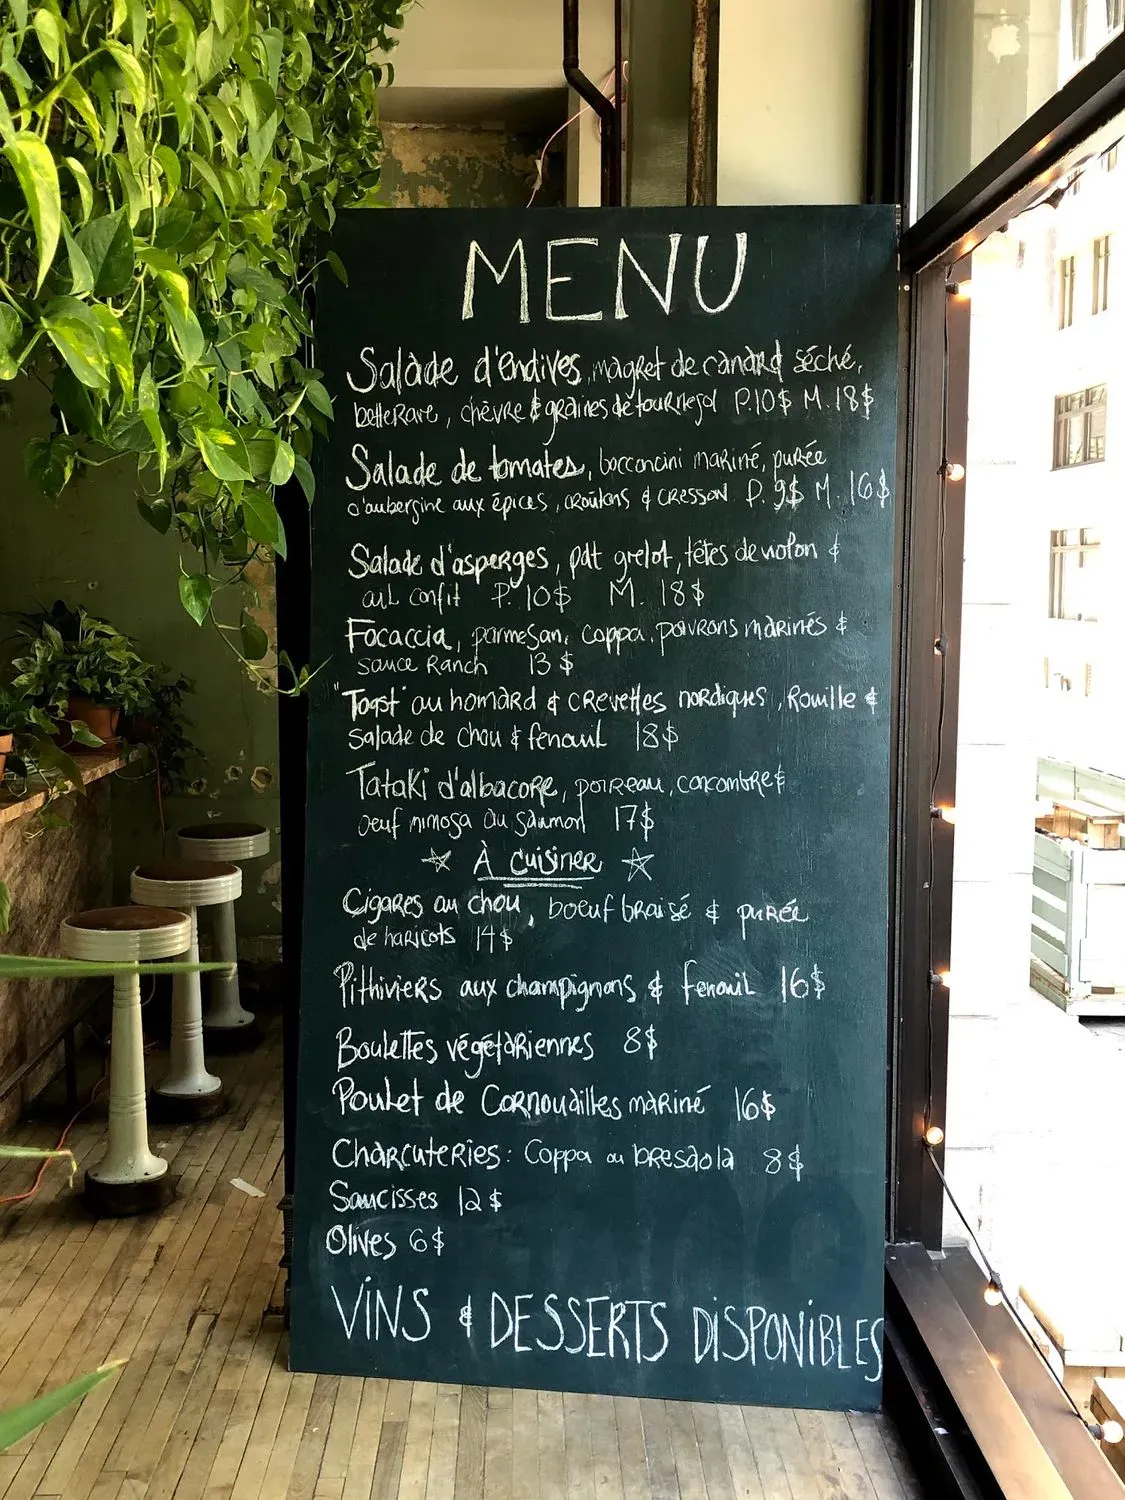 MENU
Salade d'endives, magret de canard séché,
betterave, chèvre & graines de tournesol P.10$ M.18$
Salade de tomates, bocconcini mariné, purée
d'aubergine aux épices, croûtons & cresson P. 9$ M. 16$
Salade d'asperges, pdt grelot, têtes de violon &
ail confit P. 10$ M. 18$
Focaccia, parmesan, coppa, poivrons marinés &
sauce Ranch 13$
"Toast" au homard & crevettes nordiques, Rouille &
salade de chou & fenouil 18$
Tataki d'albacore, poireau, concombre &
oeuf mimosa au saumon 17$
☆ À cuisiner ☆
Cigares au chou, boeuf braisé & purée
de haricots 14$
Pithiviers aux champignons & fenouil 16$
Boulettes végétariennes 8$
Poulet de Cornouailles mariné 16$
Charcuteries: Coppa ou bresaola 8$
Saucisses 12$
Olives 6$
VINS & DESSERTS DISPONIBLES